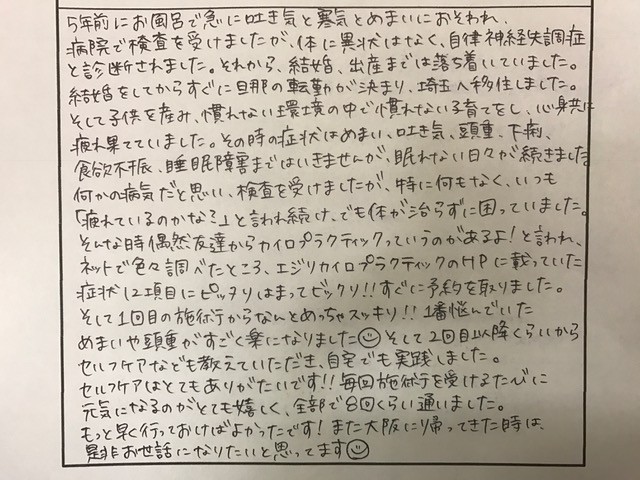 5年前にお風呂で急に吐き気と寒気とめまいにおそわれ、
病院で検査を受けましたが、体に異状はなく、自律神経失調症
と診断されました。それから、結婚、出産までは落ち着いていました。
結婚をしてからすぐに旦那の転勤が決まり、埼玉へ移住しました。
そして子供を産み、慣れない環境の中で慣れない子育てをし、心身共に
疲れ果てていました。その時の症状はめまい、吐き気、頭重、下痢、
食欲不振、睡眠障害まではいきませんが、眠れない日々が続きました。
何かの病気だと思い、検査を受けましたが、特に何もなく、いつも
「疲れているのかな?」と言われ続け、でも体が治らずに困っていました。
そんな時偶然友達からカイロプラクティックっていうのがあるよ!と言われ、
ネットで色々調べたところ、エジリカイロプラクティックのHPに載っていた
症状12項目にピッタリはまってビックリ!!すぐに予約を取りました。
そして1回目の施術からなんとめっちゃスッキリ!!1番悩んでいた
めまいや頭重がすごく楽になりました☺そして2回目以降くらいから
セルフケアなども教えていただき、自宅でも実践しました。
セルフケアはとてもありがたいです!!毎回施術を受けるたびに
元気になるのがとても嬉しく、全部で8回くらい通いました。
もっと早く行っておけばよかったです!また大阪に帰ってきた時は、
是非お世話になりたいと思ってます☺